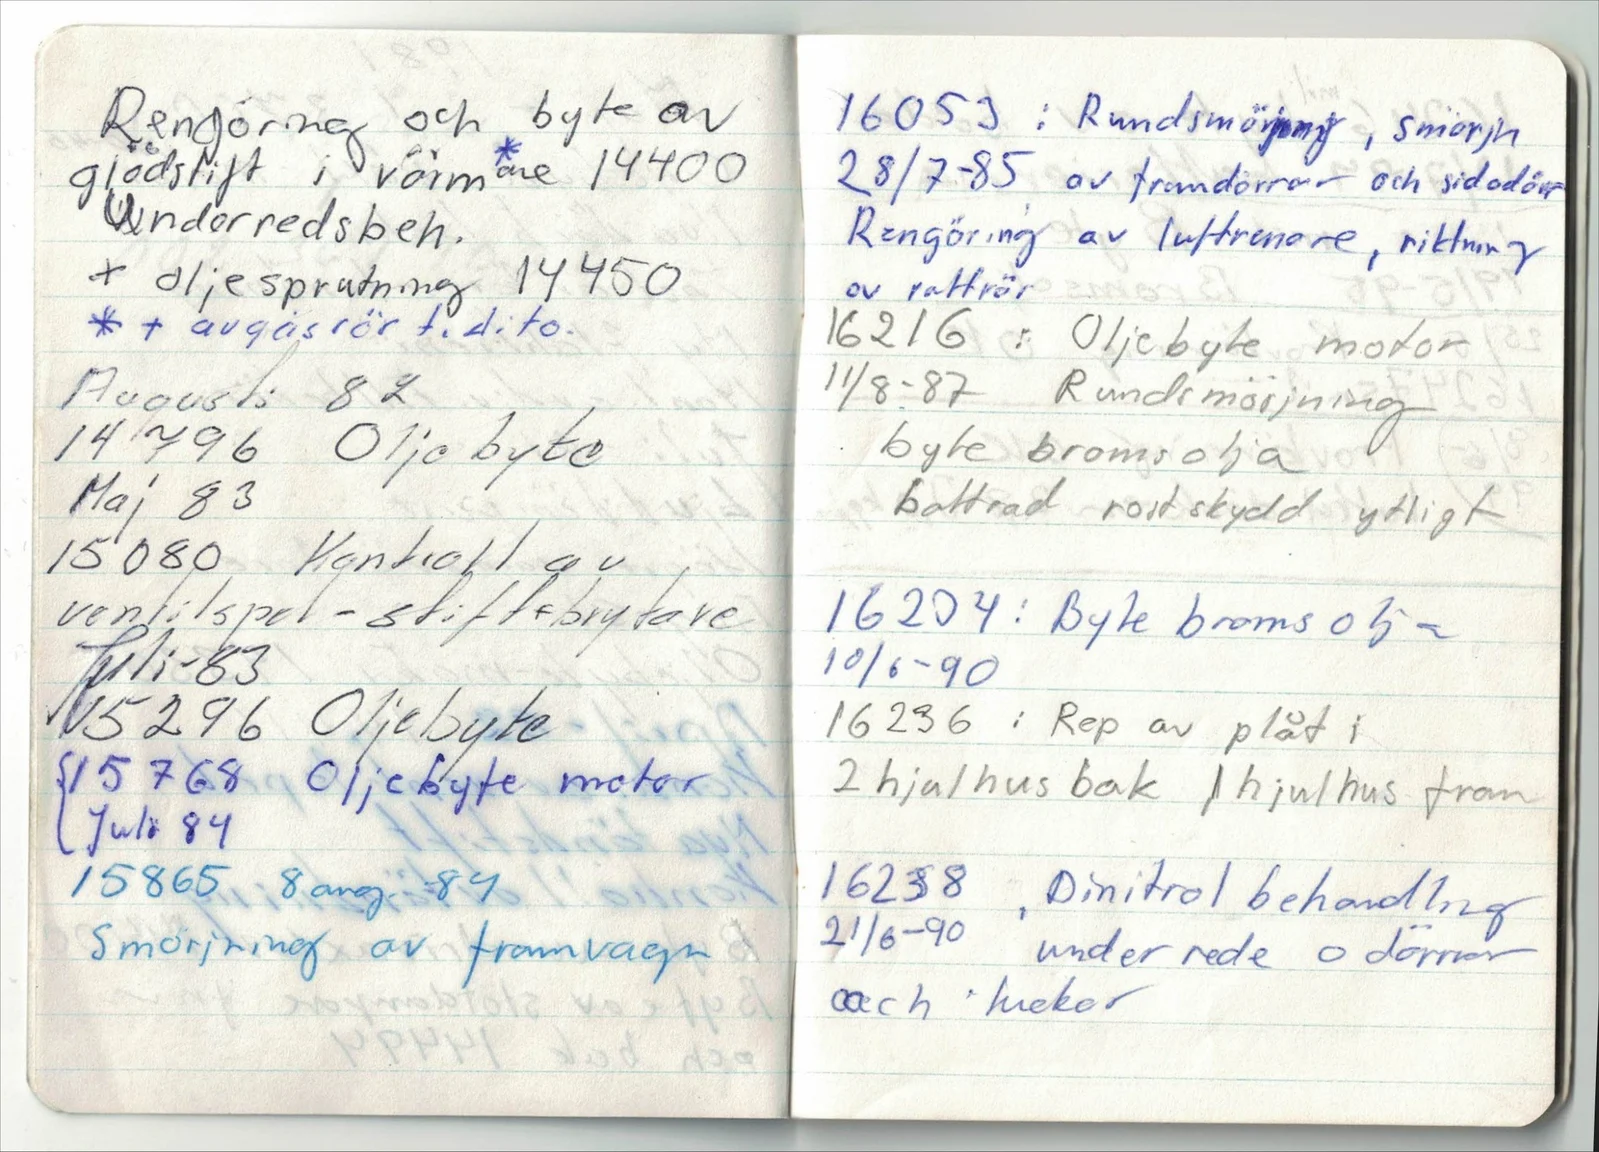 Rengöring och byte av
glödstift i värm*are 14400
Underredsbeh.
+ oljesprutning 14450
* + avgasrör t. dito.
Augusti 82
14 796 Oljebyte
Maj 83
15080 Kontroll av
ventilspel - stift & brytare
Juli-83
15296 Oljebyte
15768 Oljebyte motor
Juli 84
15865 8 aug. -84
Smörjning av framvagn
16053 : Rundsmörjning, smörjn
28/7-85 av framdörrar och sidodörr
Rengöring av luftrenare, riktning
av rattrör
16216 : Oljebyte motor
11/8-87 Rundsmörjning
byte bromsolja
bättrad rostskydd ytligt
16234 : Byte bromsolja
10/6-90
16236 : Rep av plåt i
2 hjulhus bak 1 hjulhus fram
16238 , Dinitrol behandlng
21/6-90 underrede o dörrar
och luckor